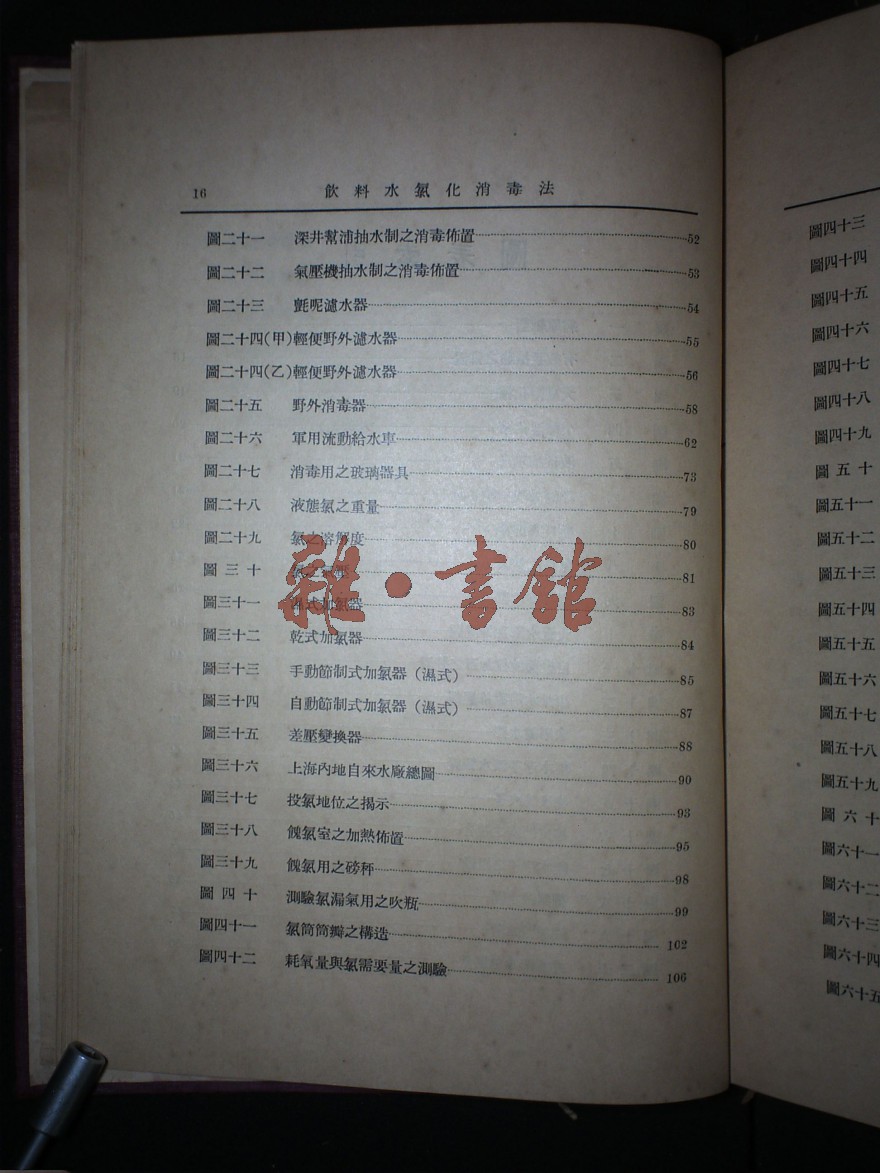 16 飲料水氯化消毒法
圖二十一 深井幫浦抽水制之消毒佈置 52
圖二十二 氣壓機抽水制之消毒佈置 53
圖二十三 氈呢濾水器 54
圖二十四(甲)輕便野外濾水器 55
圖二十四(乙)輕便野外濾水器 56
圖二十五 野外消毒器 58
圖二十六 軍用流動給水車 62
圖二十七 消毒用之玻璃器具 73
圖二十八 液態氯之重量 79
圖二十九 氯之溶解度 80
圖三十 81
圖三十一 濕式加氯器 83
圖三十二 乾式加氯器 84
圖三十三 手動節制式加氯器（濕式） 85
圖三十四 自動節制式加氯器（濕式） 87
圖三十五 差壓變換器 88
圖三十六 上海內地自來水廠總圖 90
圖三十七 投氯地位之揭示 93
圖三十八 餽氯室之加熱佈置 95
圖三十九 餽氯用之磅秤 98
圖四十 測驗氯漏氣用之吹瓶 99
圖四十一 氯筒筒瓣之構造 102
圖四十二 耗氧量與氯需要量之測驗 106
雜·書館
圖四十三
圖四十四
圖四十五
圖四十六
圖四十七
圖四十八
圖四十九
圖五十
圖五十一
圖五十二
圖五十三
圖五十四
圖五十五
圖五十六
圖五十七
圖五十八
圖五十九
圖六十
圖六十一
圖六十二
圖六十三
圖六十四
圖六十五